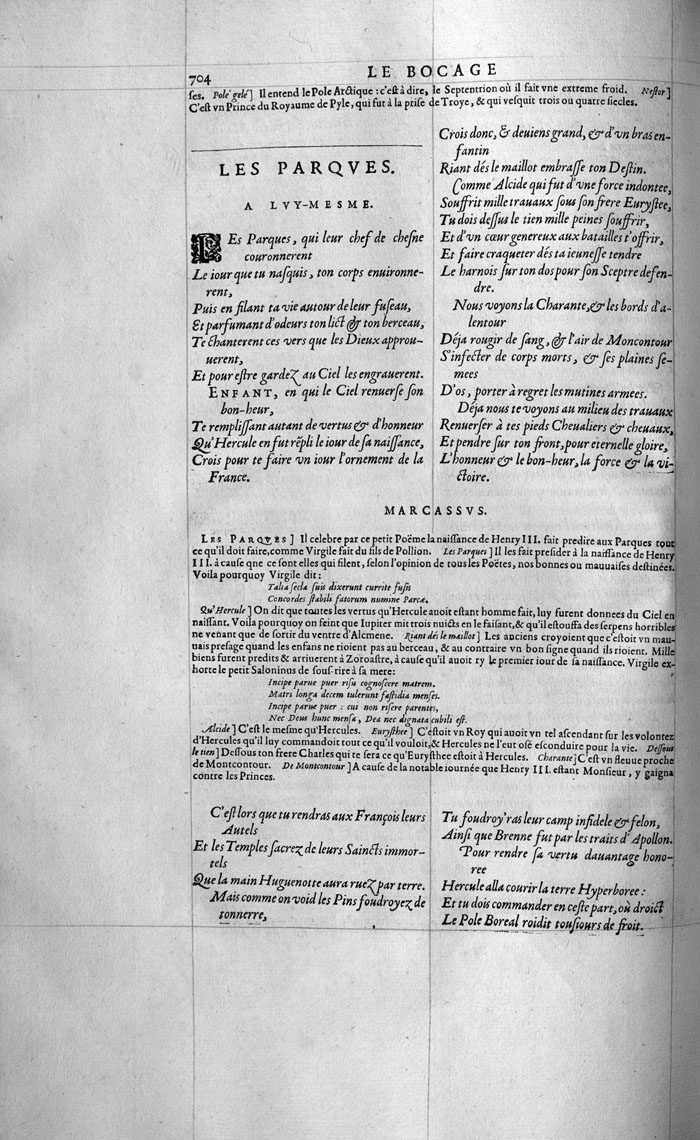 704
LE BOCAGE
ses. Pole gelé] Il entend le Pole Arctique : c'est à dire, le Septentrion où il fait vne extreme froid. Nestor]
C'est vn Prince du Royaume de Pyle, qui fut à la prise de Troye, & qui vesquit trois ou quatre siecles.
LES PARQVES.
A LVY-MESME.
LEs Parques, qui leur chef de chesne
couronnerent
Le iour que tu nasquis, ton corps enuironne-
rent,
Puis en filant ta vie autour de leur fuseau,
Et parfumant d'odeurs ton lict & ton berceau,
Te chanterent ces vers que les Dieux approu-
uerent,
Et pour estre gardez au Ciel les engrauerent.
ENFANT, en qui le Ciel renuerse son
bon-heur,
Te remplissant autant de vertus & d'honneur
Qu'Hercule en fut rẽpli le iour de sa naissance,
Crois pour te faire vn iour l'ornement de la
France.
Crois donc, & deuiens grand, & d'vn bras en-
fantin
Riant dés le maillot embrasse ton Destin.
Comme Alcide qui fut d'vne force indontee,
Souffrit mille trauaux sous son frere Eurystee,
Tu dois dessus le tien mille peines souffrir,
Et d'vn cœur genereux aux batailles t'offrir,
Et faire craqueter dés ta ieunesse tendre
Le harnois sur ton dos pour son Sceptre defen-
dre.
Nous voyons la Charante, & les bords d'a-
lentour
Déja rougir de sang, & l'air de Moncontour
S'infecter de corps morts, & ses plaines se-
mees
D'os, porter à regret les mutines armees.
Déja nous te voyons au milieu des trauaux
Renuerser à tes pieds Cheualiers & cheuaux,
Et pendre sur ton front, pour eternelle gloire,
L'honneur & le bon-heur, la force & la vi-
ctoire.
MARCASSVS.
LES PARQVES] Il celebre par ce petit Poëme la naissance de Henry III. fait predire aux Parques tout
ce qu'il doit faire, comme Virgile fait du fils de Pollion. Les Parques] Il les fait presider à la naissance de Henry
III. à cause qne ce sont elles qui filent, selon l'opinion de tous les Poëtes, nos bonnes ou mauuaises destinées.
Voila pourquoy Virgile dit :
Talia secla suis dixerunt currite fusis
Concordes stabili fatorum numine Parcæ.
Qu'Hercule] On dit que toutes les vertus qu'Hercule auoit estant homme fait, luy furent donnees du Ciel en
naissant. Voila pourquoy on feint que Iupiter mit trois nuicts en le faisant, & qu'il estouffa des serpens horribles
ne venant que de sortir du ventre d'Alcmene. Riant dés le maillot] Les anciens croyoient que c'estoit vn mau-
uais presage quand les enfans ne rioient pas au berceau, & au contraire vn bon signe quand ils rioient. Mille
biens furent predits & arriuerent à Zoroastre, à cause qu'il auoit ry le premier iour de sa naissance. Virgile ex-
horte le petit Saloninus de sous-rire à sa mere :
Incipe parue puer risu cognoscere matrem.
Matri longa decem tulerunt fastidia menses.
Incipe parue puer : cui non risere parentes,
Nec Deus hunc mensa, Dea nec dignata cubili est.
Alcide] C'est le mesme qu'Hercules. Eurysthee] C'estoit vn Roy qui auoit vn tel ascendant sur les volontez
d'Hercules qu'il luy commandoit tout ce qu'il vouloit, & Hercules ne l'eut osé esconduire pour la vie. Dessous
le tien] Dessous ton frere Charles qui te sera ce qu'Eurysthee estoit à Hercules. Charante] C'est vn fleuue proche
de Montcontour. De Montcontour] A cause de la notable journée que Henry III. estant Monsieur, y gaigna
contre les Princes.
C'est lors que tu rendras aux François leurs
Autels
Et les Temples sacrez de leurs Saincts immor-
tels
Que la main Huguenotte aura ruez par terre.
Mais comme on void les Pins foudroyez de
tonnerre,
Tu foudroy'ras leur camp infidele & felon,
Ainsi que Brenne fut par les traits d'Apollon.
Pour rendre sa vertu dauantage hono-
ree
Hercule alla courir la terre Hyperboree :
Et tu dois commander en ceste part, où droict
Le Pole Boreal roidit tousiours de froit.